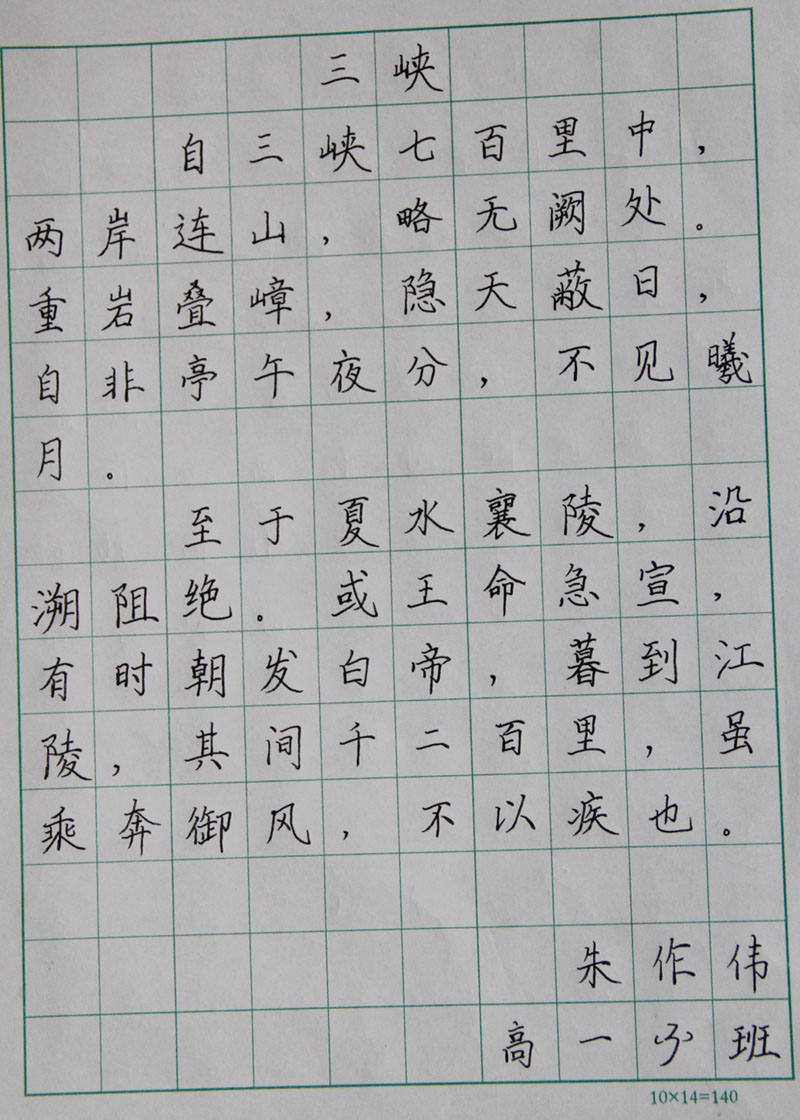 三峡
自三峡七百里中，
两岸连山，略无阙处。
重岩叠嶂，隐天蔽日，
自非亭午夜分，不见曦
月。
至于夏水襄陵，沿
溯阻绝。或王命急宣，
有时朝发白帝，暮到江
陵，其间千二百里，虽
乘奔御风，不以疾也。
朱作伟
高一 班
10×14=140